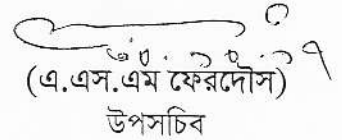 (এ.এস.এম ফেরদৌস)
উপসচিব